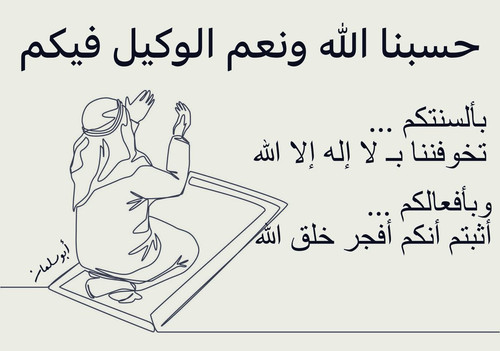 حسبنا الله ونعم الوكيل فيكم
بألسنتكم ...
تخوفننا بـ لا إله إلا الله
وبأفعالكم ...
أثبتم أنكم أفجر خلق الله